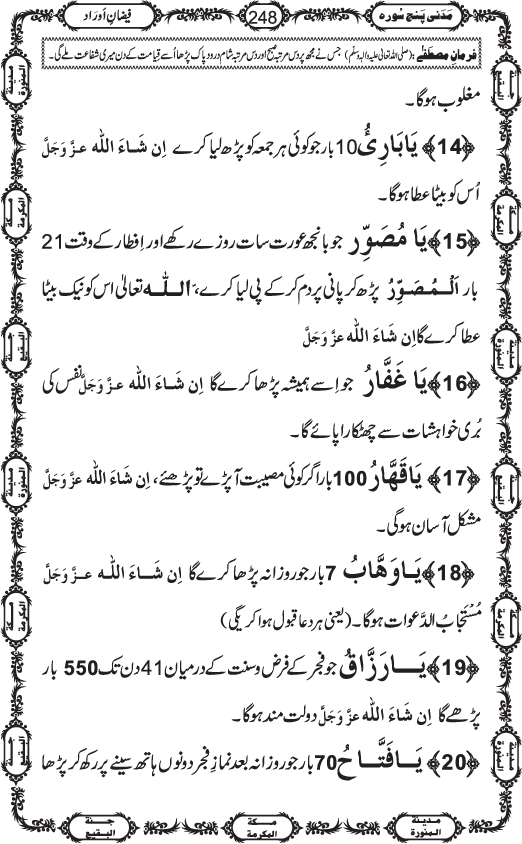 مَدَنی پنج سُورہ
248
فیضانِ اَوراد
فرمانِ مصطفٰے : (صلی اللہ تعالیٰ علیہ واٰلہ وسلّم) جس نے مجھ پر دس مرتبہ صبح اور دس مرتبہ شام درود پاک پڑھا اُسے قیامت کے دن میری شفاعت ملے گی۔
مغلوب ہوگا۔
﴿14﴾ یَا بَارِئُ 10 بار جو کوئی ہر جمعہ کو پڑھ لیا کرے اِن شَاءَ اللّٰه عزَّ وَجَلَّ
اُس کو بیٹا عطا ہوگا۔
﴿15﴾ یَا مُصَوِّر جو بانجھ عورت سات روزے رکھے اور اِفطار کے وقت 21
بار اَلْمُصَوِّرُ پڑھ کر پانی پر دم کرکے پی لیا کرے، اللّٰہ تعالیٰ اس کو نیک بیٹا
عطا کرے گا اِن شَاءَ اللّٰه عزَّ وَجَلَّ
﴿16﴾ یَا غَفَّارُ جو اِسے ہمیشہ پڑھا کرے گا اِن شَاءَ اللّٰه عزَّ وَجَلَّ نفس کی
بُری خواہشات سے چھٹکارا پائے گا۔
﴿17﴾ یَا قَهَّارُ 100 بار اگر کوئی مصیبت آپڑے تو پڑھئے، اِن شَاءَ اللّٰه عزَّ وَجَلَّ
مشکل آسان ہوگی۔
﴿18﴾ یَا وَهَّابُ 7 بار جو روزانہ پڑھا کرے گا اِن شَاءَ اللّٰه عزَّ وَجَلَّ
مُسْتَجابُ الدَّعوات ہوگا۔ (یعنی ہر دعا قبول ہوا کریگی)
﴿19﴾ یَا رَزَّاقُ جو فجر کے فرض و سنت کے درمیان 41 دن تک 550 بار
پڑھے گا اِن شَاءَ اللّٰه عزَّ وَجَلَّ دولت مند ہوگا۔
﴿20﴾ یَا فَتَّاحُ 70 بار جو روزانہ بعد نمازِ فجر دونوں ہاتھ سینے پر رکھ کر پڑھا
مدینة المنورة
مكة المكرمة
جنة البقيع
مدينة المنورة
مكة المكرمة
جنة البقيع
جنة البقيع
مكة المكرمة
مدينة المنورة
جنة البقيع
مكة المكرمة
مدينة المنورة
جنة البقيع
مكة المكرمة
مدينة المنورة